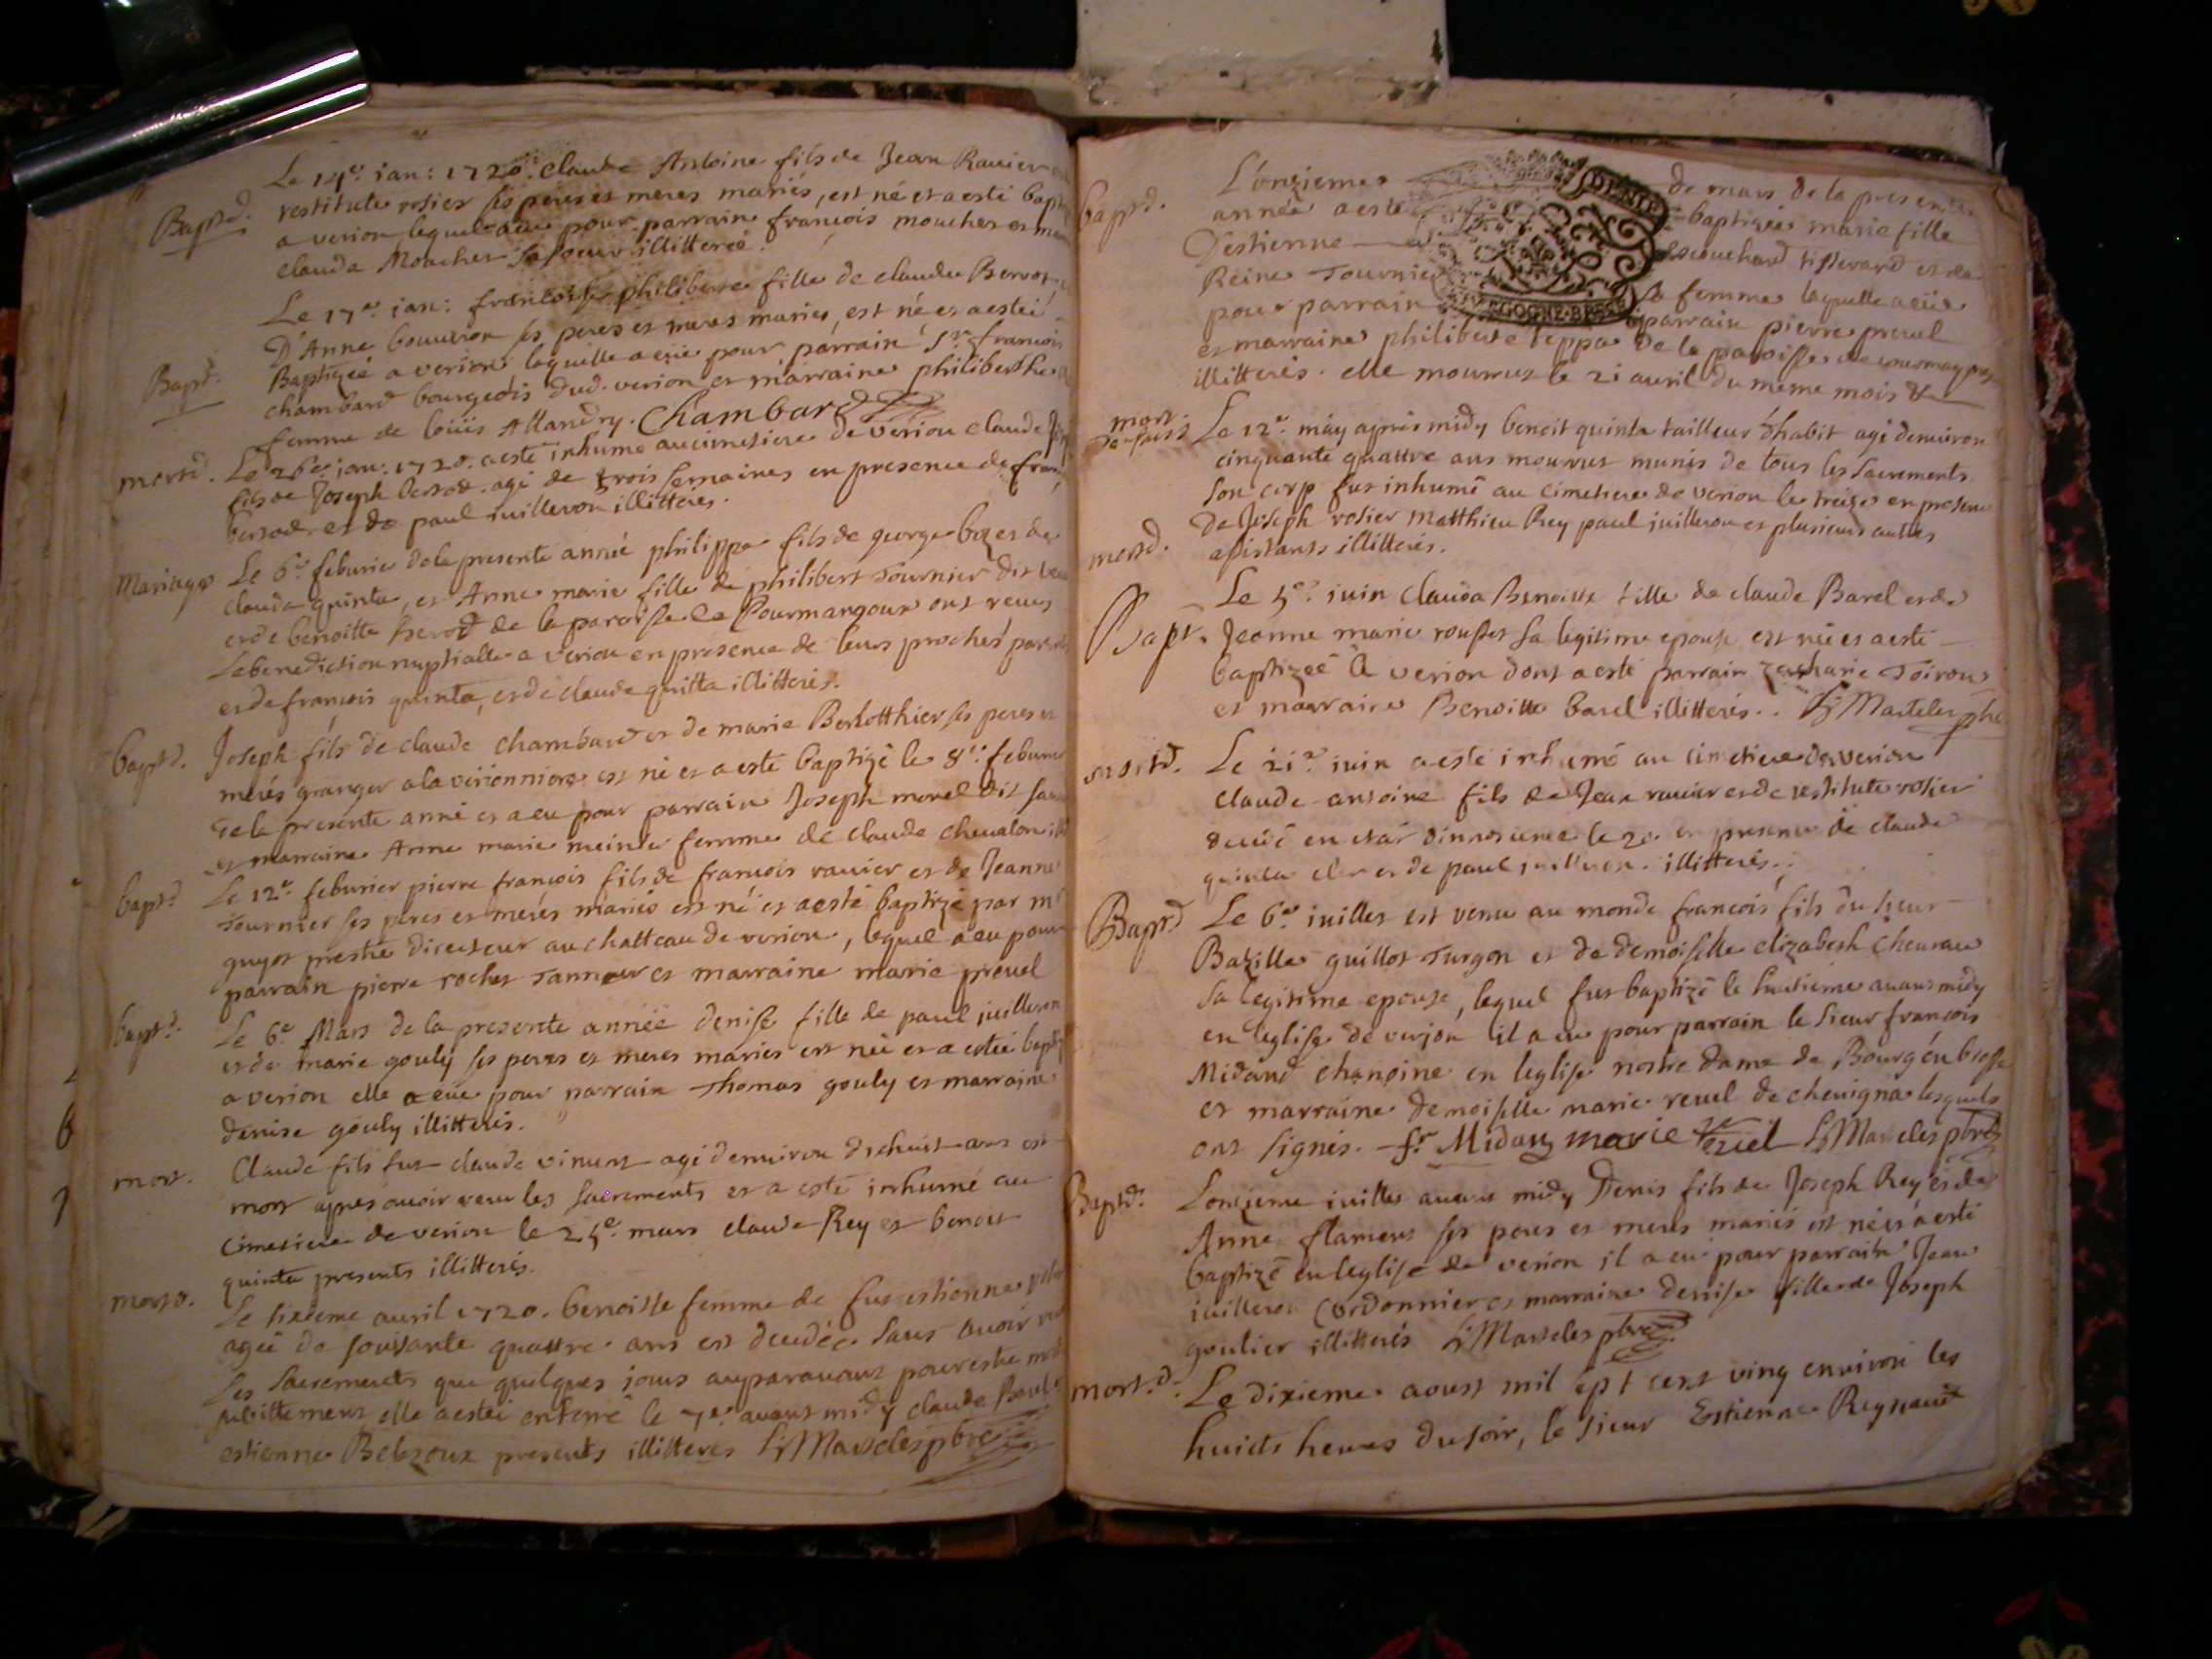 Bapt.d
Le 14.e ian: 1720. Claude Antoine fils de Jean Ravier
restitute rosier ses peres et meres mariés, est né et a esté bapt
a verion lequel a eu pour parrain françois mouches et
clauda Mouches sa soeur illitteree.
Bapt.
Le 17.e ian: françoise philiberte fille de claude
D'Anne bouvron ses peres et meres mariés, est né et a estéé
Baptizéé a verion laquelle a eüe pour parrain S.r francois
chambard bourgeois dud. verion et marraine philiberthe
femme de loüis Allandry. Chambard
mort.d
Le 26.e ian. 1720. a esté inhumé au cimetiere de verion claude
fils de Joseph agé de trois semaines en presence de
et de paul iuilleron illitterés.
Mariage
Le 6.e feburier de la presente année philippe fils de george et de
clauda quinta, et Anne marie fille de philibert Tournier dit
et de benoitte de la paroisse de Pourmangoux ont reçus
la benediction nuptialle a verion en présence de leurs proches
et de françois quinta, et de claude quinta illitterés.
bapt.d
Joseph fils de claude chambard et de marie Berlotthier ses peres et
meres granger a la verionniere est né et a esté baptizé le 8.e feburier
de la presente anné et a eu pour parrain Joseph morel dit
et marraine Anne marie femme de claude chevalon
bapt.d
Le 12.e feburier pierre francois fils de francois ravier et de Jeanne
Tournier ses peres et meres mariés est né et a esté baptizé par
guyot prestre directeur au chatteau de verion, lequel a eu pour
parrain pierre rochet Tanneur et marraine marie prevel
bapt.d
Le 6.e Mars de la presente année denise fille de paul iuilleron
et de marie gouly ses peres et meres mariés est née et a estéé
a verion elle a eüe pour parrain Thomas gouly et marraine
denise gouly illitterés.
mort.
Claude fils fut claude vincent agé denviron dixhuit ans est
mort apres avoir receu les sacrements et a esté inhumé au
Cimetiere de verion le 25.e mars claude Rey et benoit
quinta presents illitterés.
mort.d
Le sixieme avril 1720. benoitte femme de fut estienne
ageé de soixante quattre ans est decedéé sans avoir
les sacrements que quelques iours auparavant pour estre
subittement elle a estéé enterré le 7.e avant midy claude
estienne presents illitteres Martelet pbre
bapt.d
L'onzieme de mars de la presente
année a esté baptizéé marie fille
D'estienne et de
Reine Tournier sa femme laquelle a eüe
pour parrain parrain pierre prevel
et marraine philiberte teppa de la paroisse de
illitterés. elle mourrut le 21 avril du meme mois &
mort.
Le 12.e may apres midy benoit quinta tailleur d'habit agé denviron
cinquante quattre ans mourrut munis de tous les sacrements
son corp fut inhumé au cimetiere de verion le treize en presence
mort.d
de Joseph rosier Matthieu Rey paul iuilleron et plusieurs autres
assistants illitterés.
Bapt.
Le 5.e iuin clauda Benoitte fille de claude Barel et de
Jeanne marie rousset sa legitime epouse est née et a esté
baptizéé a verion dont a esté parrain zacharie
et marraine Benoitte barel illitterés. Martelet pbre
mort.d
Le 21.e iuin a esté inhumé au cimetiere de verion
claude-antoine fils de Jean ravier et de restitute rosier
decedé en etat d'innocence le 20. en presence de claude
quinta et de paul iuilleron. illitterés.
Bapt.d
Le 6.e iuillet est venu au monde francois fils du sieur
Bazille guillot Turgon et de demoiselle elizabeth
sa legitime epouse, lequel fut baptizé le huitieme avant midy
en leglise de verjon il a eu pour parrain le sieur francois
Midand chanoine en leglise nostre dame de Bourg en bresse
et marraine demoiselle marie revel de chevigna lesquels
ont signés. fr. Midan marie Martelet pbre
Bapt.d
L'onzieme iuillet avant midy Denis fils de Joseph Rey et de
Anne flament ses peres et meres mariés est né et a esté
baptizé en leglise de verion il a eu pour parrain Jean
iuilleron Cordonnier et marraine denise fille de Joseph
goulier illitterés Martelet pbre
mort.d
Le dixieme aoust mil sept cent ving environ les
huicts heures du soir, le sieur Estienne Reynaud